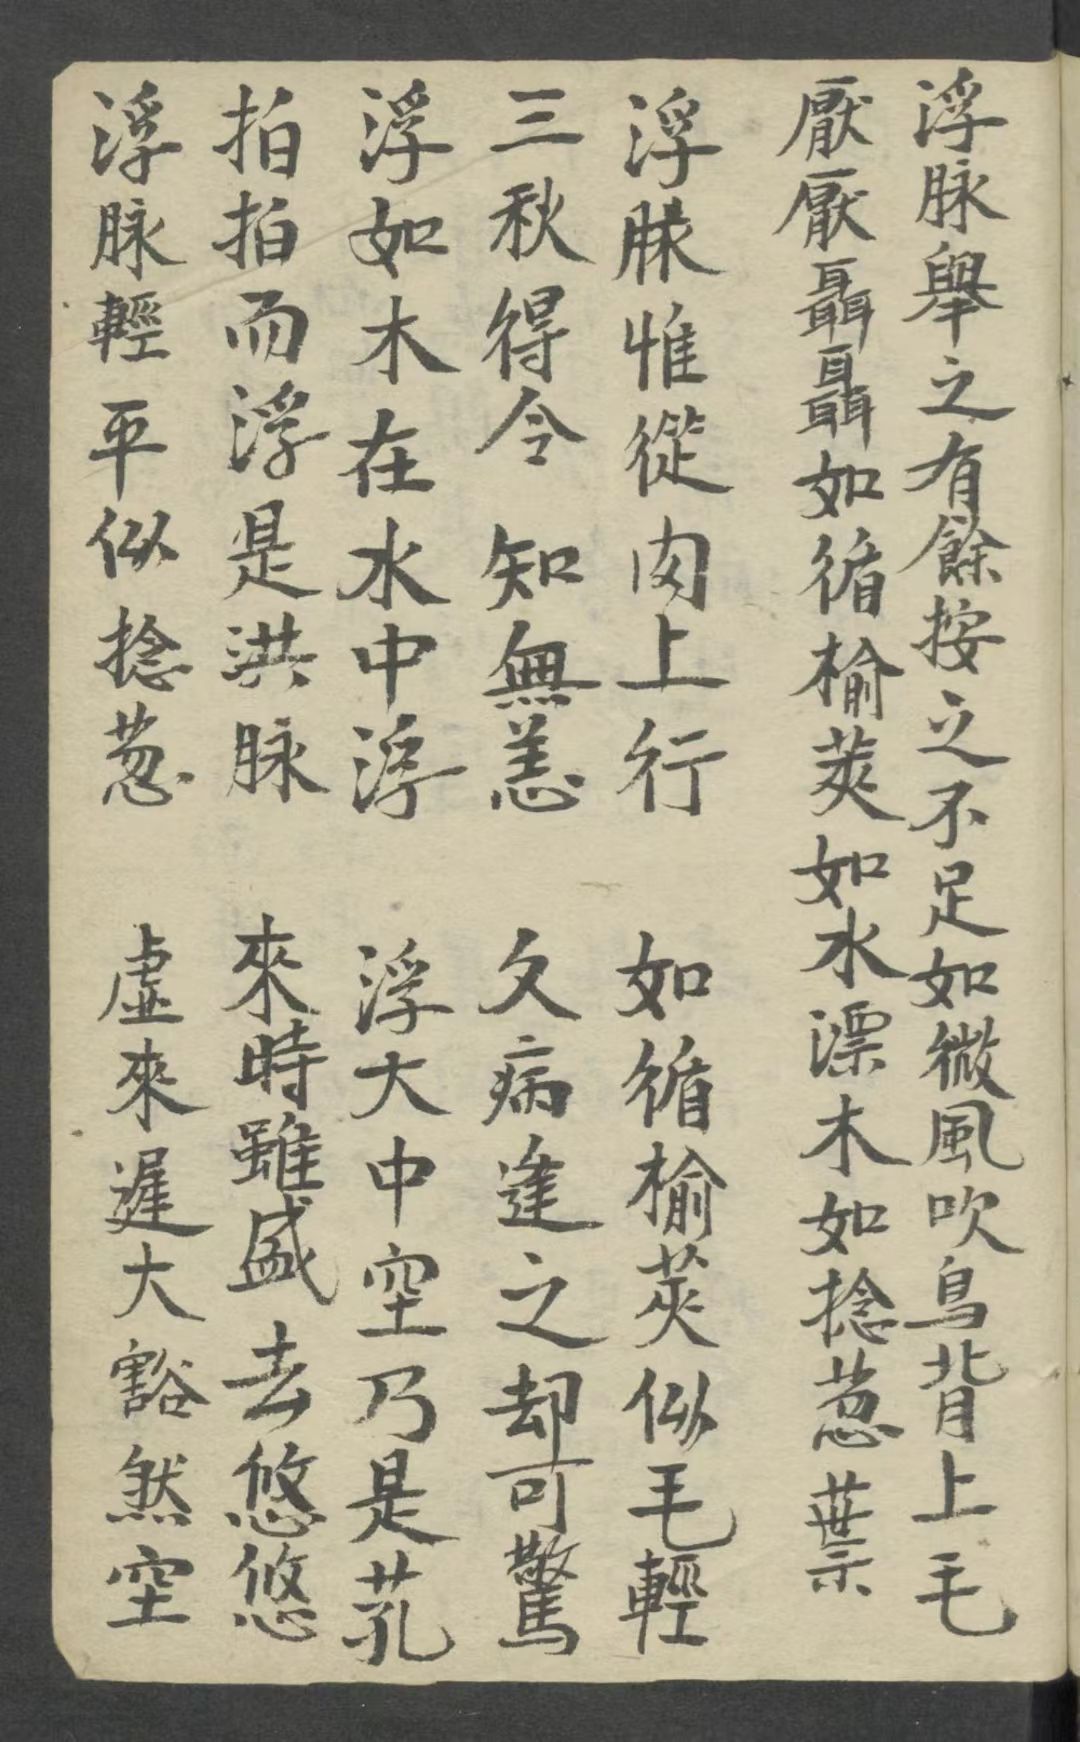 浮脉舉之有餘按之不足如微風吹鳥背上毛
厭厭聶聶如循榆莢如水漂木如捻葱葉
浮脉惟從肉上行 如循榆莢似毛輕
三秋得令知無恙 久病逢之却可驚
浮如木在水中浮 浮大中空乃是芤
拍拍而浮是洪脉 來時雖盛去悠悠
浮脉輕平似捻葱 虛來遲大豁然空